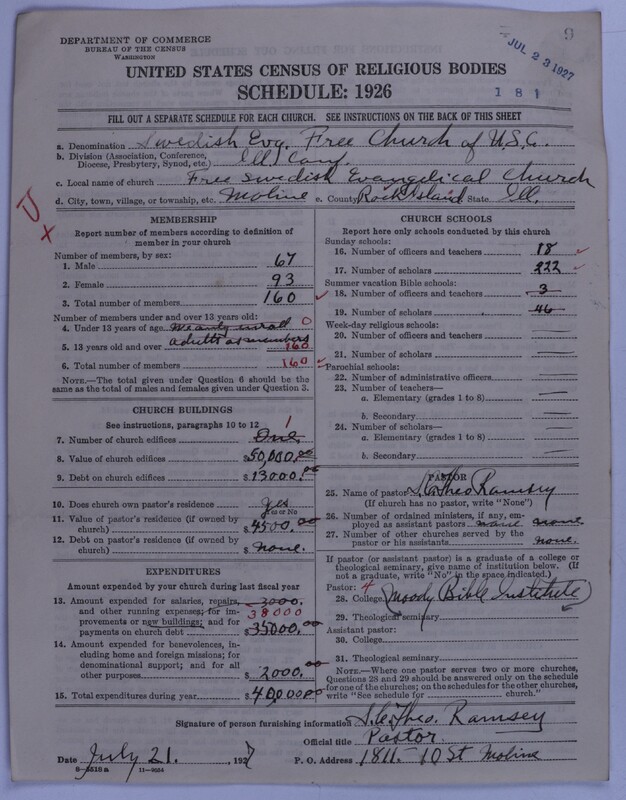 DEPARTMENT OF COMMERCE
BUREAU OF THE CENSUS
WASHINGTON
9
JUL 23 1927
UNITED STATES CENSUS OF RELIGIOUS BODIES
SCHEDULE: 1926
1 8 1
FILL OUT A SEPARATE SCHEDULE FOR EACH CHURCH. SEE INSTRUCTIONS ON THE BACK OF THIS SHEET
a. Denomination Swedish Evg. Free Church of U.S.A.
b. Division (Association, Conference, Diocese, Presbytery, Synod, etc.) Ill. Conf.
c. Local name of church Free Swedish Evangelical Church
d. City, town, village, or township, etc. Moline e. County Rock Island State Ill.
MEMBERSHIP
Report number of members according to definition of member in your church
Number of members, by sex:
1. Male 67
2. Female 93
3. Total number of members 160
Number of members under and over 13 years old:
4. Under 13 years of age We only enroll 0
5. 13 years old and over adults as members 160
6. Total number of members 160
NOTE.—The total given under Question 6 should be the same as the total of males and females given under Question 3.
CHURCH BUILDINGS
See instructions, paragraphs 10 to 12
7. Number of church edifices One 1
8. Value of church edifices $50,000.00
9. Debt on church edifices $13000.00
10. Does church own pastor's residence yes
Yes or No
11. Value of pastor's residence (if owned by church) $4500.00
12. Debt on pastor's residence (if owned by church) $ None.
EXPENDITURES
Amount expended by your church during last fiscal year
13. Amount expended for salaries, repairs, 3000.
and other running expenses; for im- 38000
provements or new buildings; and for
payments on church debt $35000.00
14. Amount expended for benevolences, including home and foreign missions; for denominational support; and for all other purposes $2000.00
15. Total expenditures during year $40,000.00
CHURCH SCHOOLS
Report here only schools conducted by this church
Sunday schools:
16. Number of officers and teachers 18
17. Number of scholars 222
Summer vacation Bible schools:
18. Number of officers and teachers 3
19. Number of scholars 46
Week-day religious schools:
20. Number of officers and teachers
21. Number of scholars
Parochial schools:
22. Number of administrative officers
23. Number of teachers—
a. Elementary (grades 1 to 8)
b. Secondary
24. Number of scholars—
a. Elementary (grades 1 to 8)
b. Secondary
PASTOR
25. Name of pastor Theo Ramsey
(If church has no pastor, write "None")
26. Number of ordained ministers, if any, employed as assistant pastors none none.
27. Number of other churches served by the pastor or his assistants none.
If pastor (or assistant pastor) is a graduate of a college or theological seminary, give name of institution below. (If not a graduate, write "No" in the space indicated.)
Pastor: 4
28. College Moody Bible Institute
29. Theological seminary
Assistant pastor:
30. College
31. Theological seminary
NOTE.—Where one pastor serves two or more churches, Questions 28 and 29 should be answered only on the schedule for one of the churches; on the schedules for the other churches, write "See schedule for church."
Signature of person furnishing information Theo. Ramsey
Official title Pastor.
Date July 21. 1927 P. O. Address 1811-10 St Moline
8—5518a 11—9554